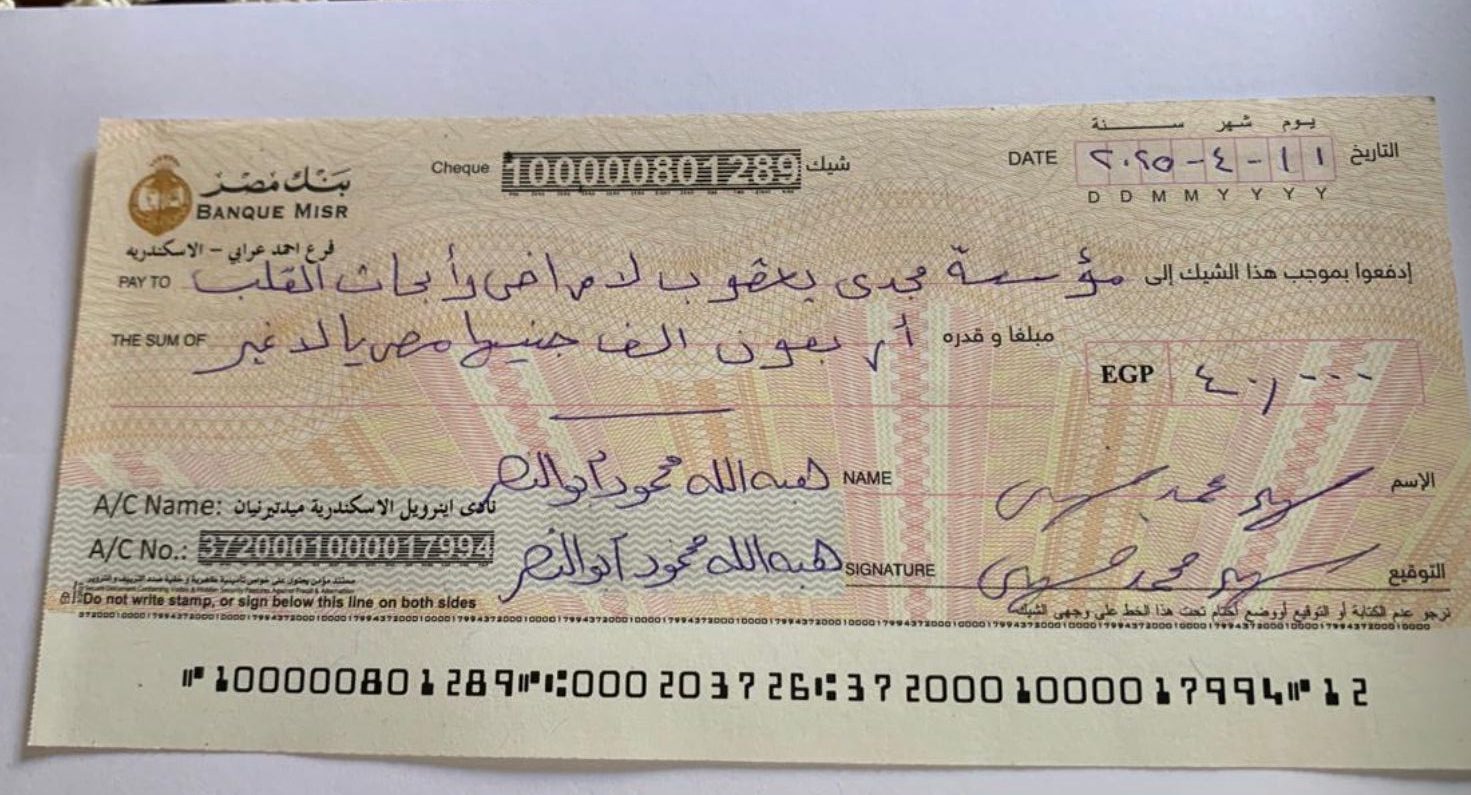 يوم شهر سنة
التاريخ ١١-٤-٢٠٢٥ DATE
D D M M Y Y Y Y
شيك 100000801289 Cheque
بنك مصر
BANQUE MISR
فرع احمد عرابي - الاسكندريه
إدفعوا بموجب هذا الشيك إلى مؤسسة مجدى يعقوب لامراض وأبحاث القلب PAY TO
مبلغا و قدره أربعون الف جنيها مصريا لا غير THE SUM OF
EGP ٤٠,٠٠٠
الإسم سهير محمد هبه الله محمود أبو النصر NAME
A/C Name: نادى اينرويل الاسكندرية ميدتيرنيان
A/C No.: 3720001000017994
التوقيع سهير محمد هبه الله محمود أبو النصر SIGNATURE
Do not write stamp, or sign below this line on both sides
نرجو عدم الكتابة أو التوقيع أو وضع أختام تحت هذا الخط على وجهى الشيك
⑈100000801289⑈⑆000203726⑆3720001000017994⑈12